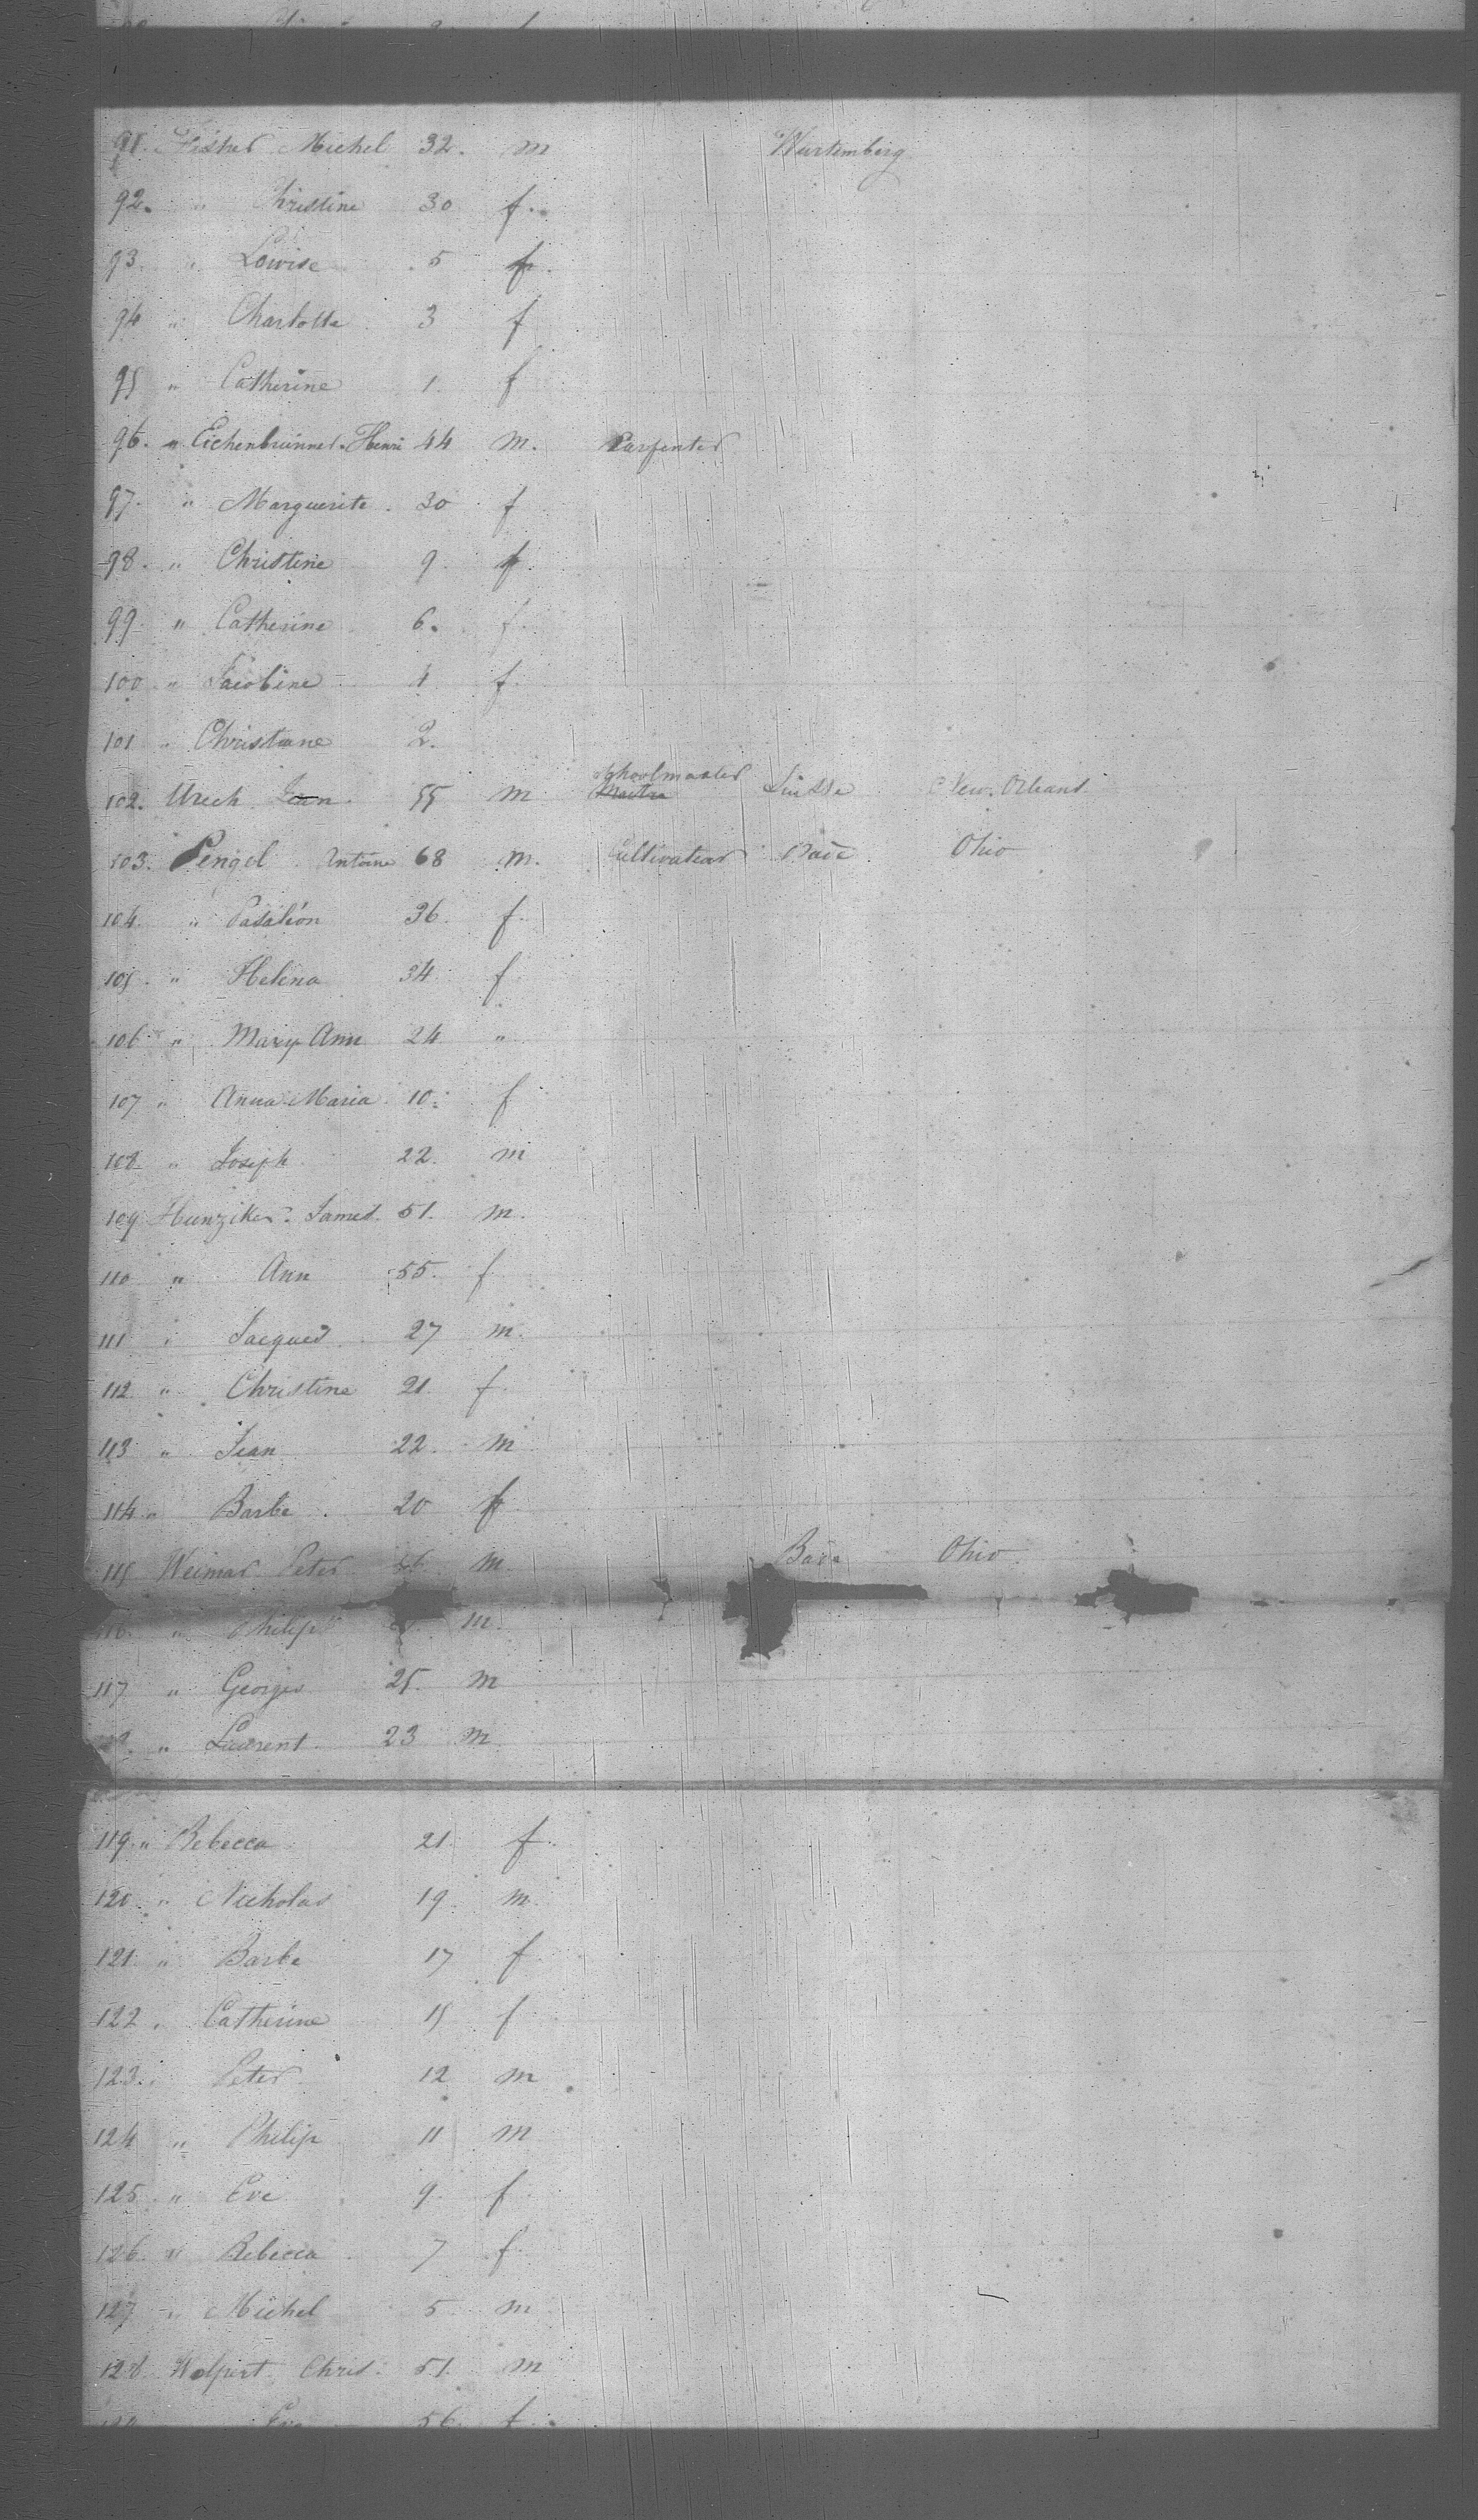 91. Fisher Michel 32. m Wurtemberg
92. " Christine 30 f.
93. " Lowise 5 f.
94 " Charlotte 3 f
95 " Catherine 1. f
96. " Eichenbrunner. Henri 44 m. Carpenter
97. " Marguerite. 30 f
98. " Christine 9. f.
99. " Catherine 6. f.
100 " Jacobine 4 f.
101 " Christiane 2.
Schoolmaster
102. Urech Jean. 55 m Suisse New. Orleans
103. Pengel Antoine 68 m. Cultivateur Bade Ohio
104. " 36. f.
105. " Helena 34 f
106 " Mary Ann 24 "
107 " Anna Maria 10. f
108 " Joseph 22. m
109 Hunziker. James. 51. m.
110 " Ann 55. f
111 " Jacques 27 m.
112 " Christine 21. f.
113 " Jean 22. m
114 " Barbe 20 f
115 Weimar Peter m. Bade Ohio.
116. " Philip m.
117 " Georges 25. m
" Laurent 23 m
119. " Rebecca 21. f.
120 " Nicholas 19. m.
121 " Barbe 17 f
122 " Catherine 15 f
123. Peter 12 m
124 " Philip 11 m
125. " Eve 9. f
126. " Rebecca 7 f
127 " Michel 5 m
128 Wolpert Chris. 51. m
129 Eve 56. f.